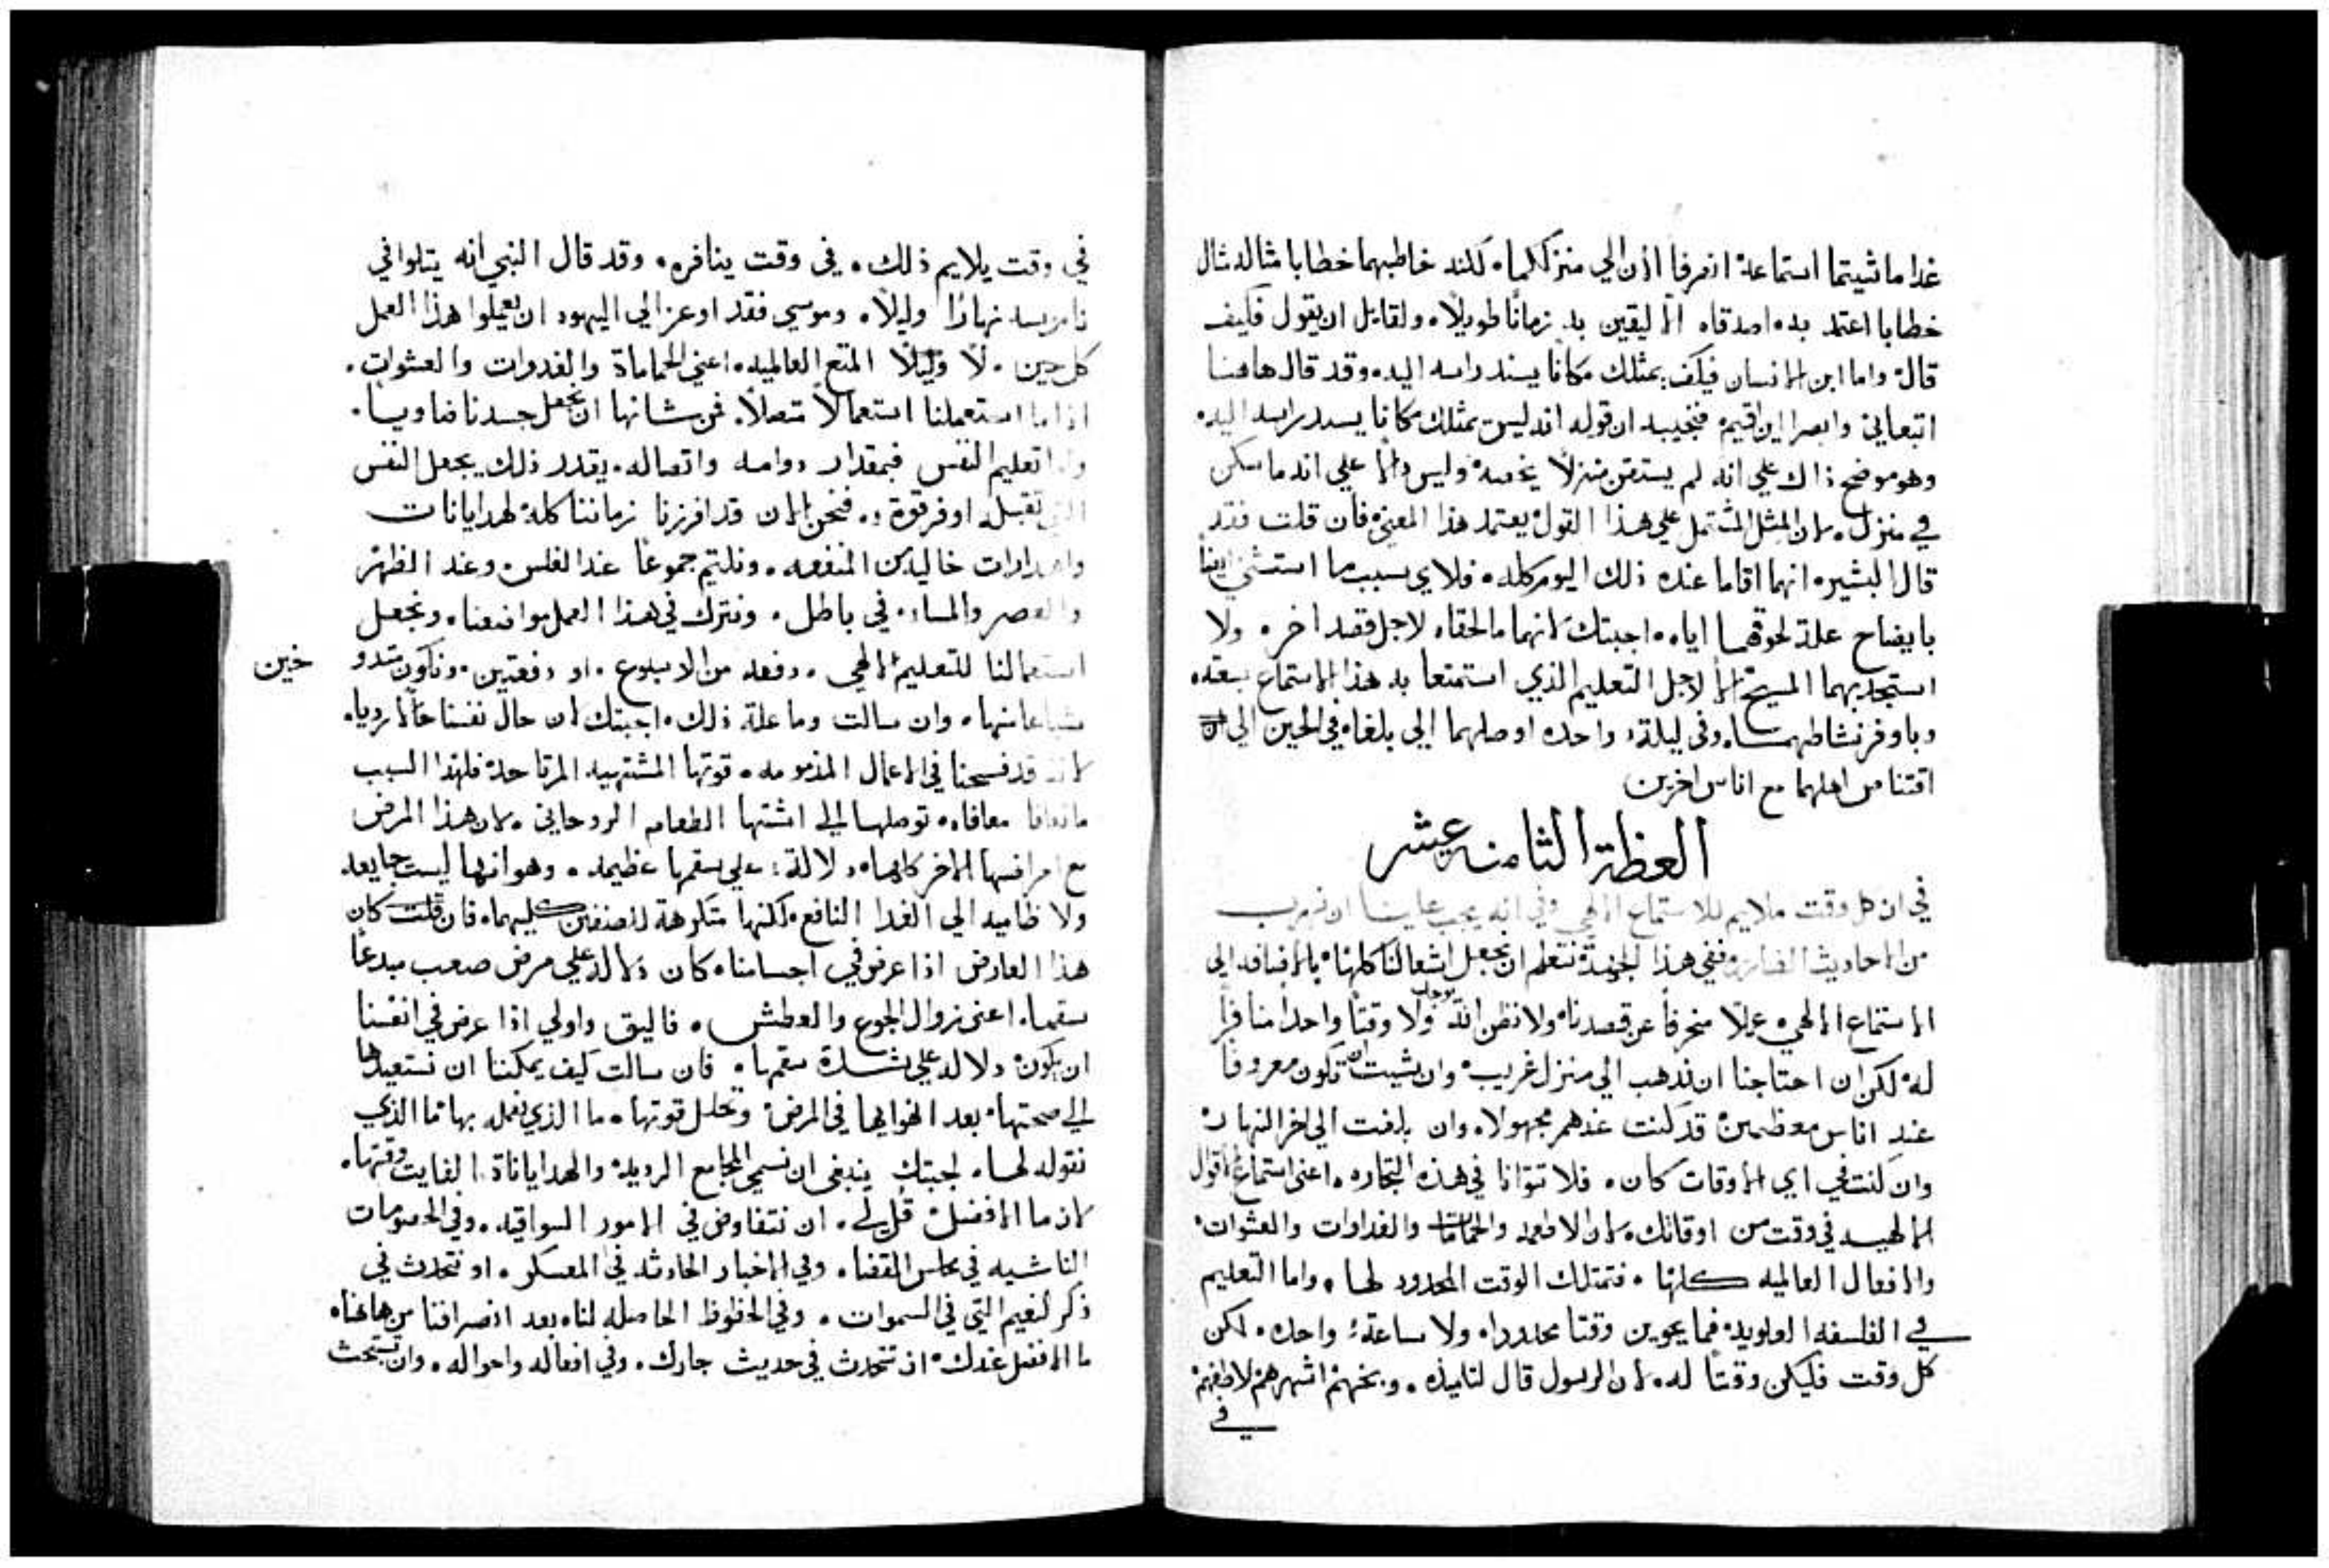 غدا ما شيتما استماعة انصرفا اذن الي منزلكما. لكنه خاطبهما خطابا مثاله مثال
خطابا اعتمد به اصدقاه الاليقين به زمانًا طويلًا. ولقايل ان يقول فكيف
قال واما ابن الانسان فيلكف يمتلك مكانًا يسند راسه اليه. وقد قال هاهنا
اتبعاني وابصرا اين اقيم فنجيبه ان قوله انه ليس يمتلك مكانا يسند راسه اليه.
وهو موضح ذاك علي انه لم يستقن منزلًا يخصه وليس دالا علي انه ما سكن
في منزل. لان المثل المشتمل علي هذا القول يعتمد هذا المعني فان قلت فقد
قال البشير انهما اقاما عنده ذلك اليوم كله. فلاي سبب ما استثني ايضًا
بايضاح علة لحوقهما اياه. اجبتك لانهما ما لحقاه لاجل قصد اخر. ولا
استجدبهما المسيح الا لاجل التعليم الذي استمتعا به هذا الاستماع بسعته
وباوفر نشاطهما. وفي ليلة واحده اوصلهما الي بلغاه في الحين الي ان
اقتنا من اهلهما مع اناس اخرين
العظة الثامنه عشر
في ان كل وقت ملايم للاستماع الالهي وفي انه يجب علينا ان نهرب
من الاحاديث الضاره ففي هذا الجهة نتعلم ان نجعل اشغالنا كلها بالاضافه الي
الاستماع الالهي عملًا منحرفًا عن قصدنا. ولا نظن انه يوجد ولا وقتًا واحدًا منافرًا
له لكن ان احتاجنا ان نذهب الي منزل غريب وان شيت ان تكون معروفًا
عند اناس معظمين قد كنت عندهم مجهولا. وان بلغت الي اخر النهار
وان كنت في اي الاوقات كان. فلا تتوانا في هذه التجاره. اعني استماع الاقوال
الالهيه في وقت من اوقاتك. لان الاطعمه والحمامات والغداوات والعشوات
والافعال العالميه كلها. فتمتلك الوقت المحدود لها. واما التعليم
في الفلسفه العلويه فما يحوين وقتا محدودا. ولا ساعة واحده. لكن
كل وقت فليكن وقتًا له. لان الرسول قال لتلميذه. وبخهم انتهرهم لاطفهم
في
في وقت يلايم ذلك. في وقت ينافره. وقد قال النبي انه يتلوا في
ناموسه نهارًا وليلًا. وموسي فقد اوعز الي اليهود ان يعملوا هذا العمل
كل حين. لا وليلًا المتع العالميه. اعني الحمامات والغدوات والعشوات.
اذا ما استعملنا استعمالًا متصلًا. فمن شانها ان تجعل جسدنا ضاويا.
واما تعليم النفس فبمقدار دوامه واتصاله. بقدر ذلك يجعل النفس
التي تقبله اوفر قوة. فنحن الان قد افرزنا زماننا كله لهدايانات
واهدارات خاليه من المنفعه. ونلتيم جموعًا عند الغلس. وعند الظهر
والعصر والمساء. في باطل. ونترك في هذا العمل مواضعنا. ونجعل
استعمالنا للتعليم الالهي. دفعه من الاسبوع. او دفعتين. ونكون متدو
خين
شباعا منها. وان سالت وما علة ذلك. اجبتك لان حال نفسنا حالًا رديا.
لاننا قد فسحنا في الاعمال المذمومه. قوتها المشتهيه المرتاحة فلهذا السبب
معافاه توصلها الي اشتها الطعام الروحاني. لان هذا المرض
مع امراضها الاخر كلها. دلالة علي سقمها عظيمه. وهو انها ليست جايعه
ولا ظاميه الي الغدا النافع. لكنها متكرهة للصنفين كليهما. فان قلت كان
هذا العارض اذا عرض في اجسامنا. كان دلاله علي مرض صعب مبدعًا
سقما. اعني زوال الجوع والعطش. فاليق واولي اذا عرض في انفسنا
ان يكون دلاله علي شدة سقمها. فان سالت كيف يمكننا ان نستعيدها
الي صحتها بعد انغوايها في المرض وتحلل قوتها. ما الذي نعمله بها ما الذي
نقوله لها. اجبتك ينبغي ان نسمي المجامع الرديه والهداياناة. الفايت وقتها.
لان ما الافضل قُل لي. ان نتفاوض في الامور السواقيه. وفي الخصومات
الناشيه في مجلس القضا. وفي الاخبار الحادثه في المعسكر. او نتحدث في
ذكر النعيم التي في السموات. وفي الحظوظ الحاصله لنا. بعد انصرافنا من هاهنا.
ما الافضل عندك ان تتحدث في حديث جارك. وفي افعاله واحواله. وان تستبحث